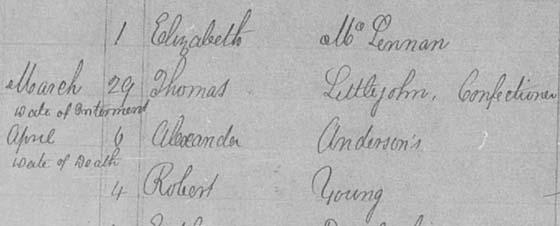 1 Elizabeth McLennan
March 29 Thomas Littlejohn, Confectioner
Date of Interment
April 6 Alexander Anderson's
Date of Death
4 Robert Young